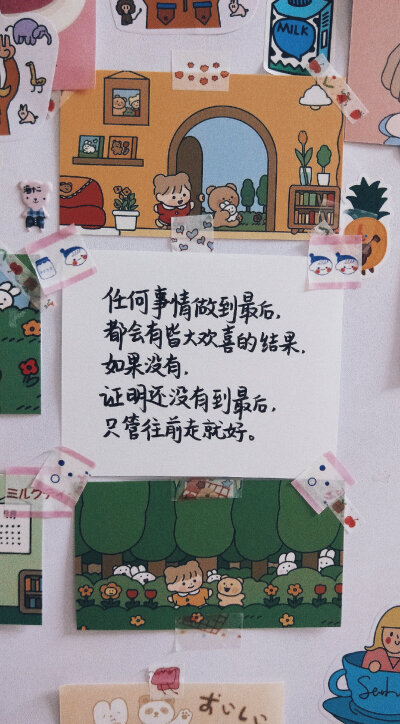 MILK
任何事情做到最后,
都会有皆大欢喜的结果.
如果没有,
证明还没有到最后,
只管往前走就好。
ミルクテ
おいしい